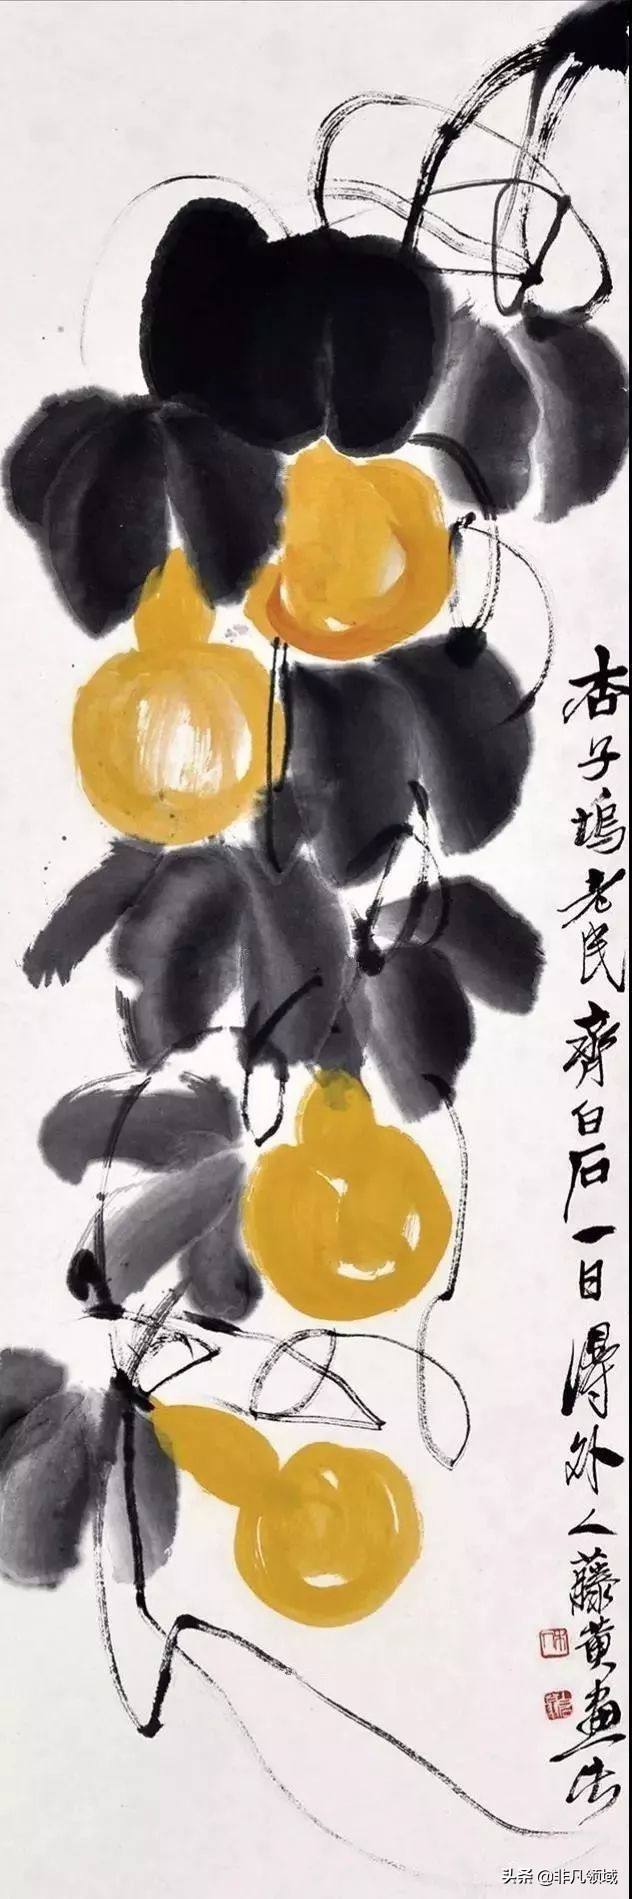 杏子塢老民齊白石一日得外人藤黄畫此
头条 @非凡领域